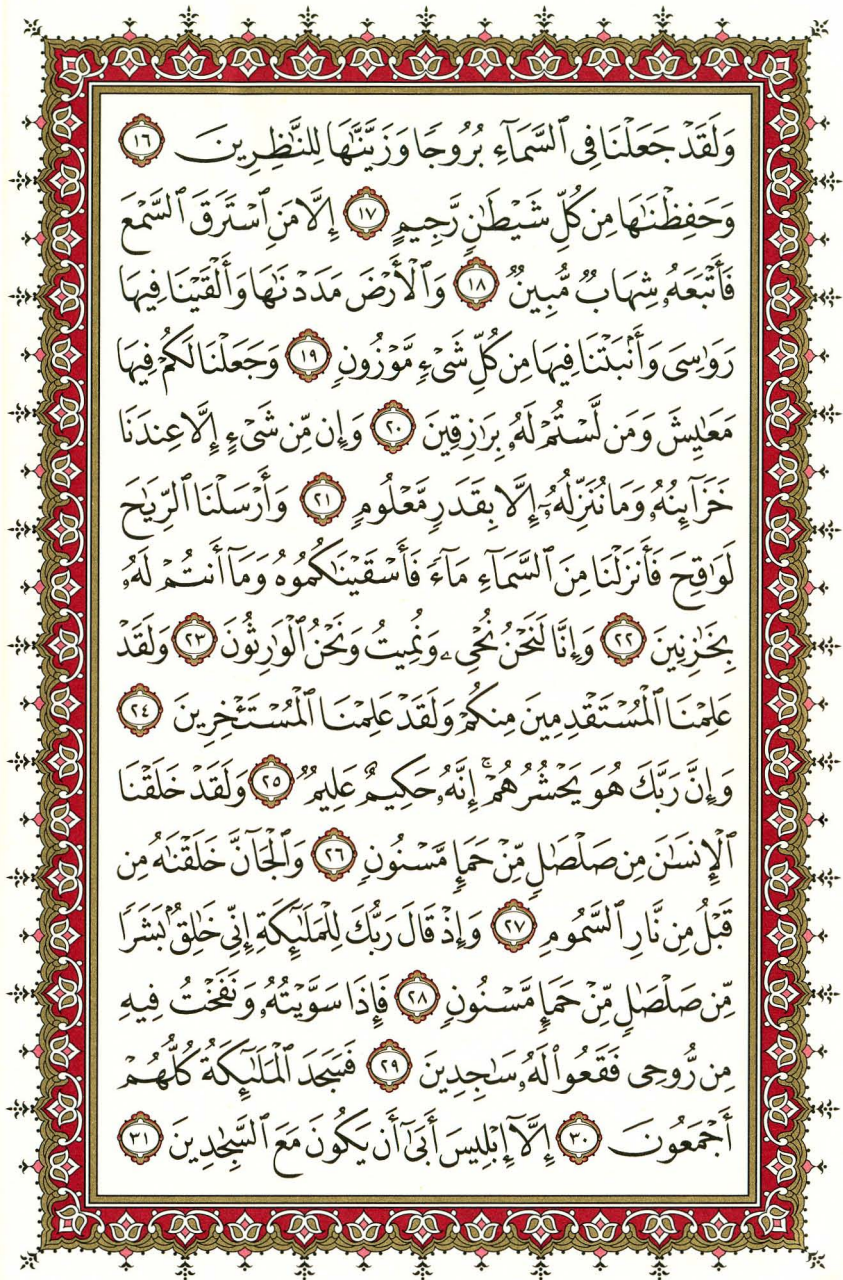 وَلَقَدْ جَعَلْنَا فِى ٱلسَّمَآءِ بُرُوجًا وَزَيَّنَّٰهَا لِلنَّٰظِرِينَ ١٦
وَحَفِظْنَٰهَا مِن كُلِّ شَيْطَٰنٍ رَّجِيمٍ ١٧ إِلَّا مَنِ ٱسْتَرَقَ ٱلسَّمْعَ
فَأَتْبَعَهُۥ شِهَابٌ مُّبِينٌ ١٨ وَٱلْأَرْضَ مَدَدْنَٰهَا وَأَلْقَيْنَا فِيهَا
رَوَٰسِىَ وَأَنۢبَتْنَا فِيهَا مِن كُلِّ شَىْءٍ مَّوْزُونٍ ١٩ وَجَعَلْنَا لَكُمْ فِيهَا
مَعَٰيِشَ وَمَن لَّسْتُمْ لَهُۥ بِرَٰزِقِينَ ٢٠ وَإِن مِّن شَىْءٍ إِلَّا عِندَنَا
خَزَآئِنُهُۥ وَمَا نُنَزِّلُهُۥٓ إِلَّا بِقَدَرٍ مَّعْلُومٍ ٢١ وَأَرْسَلْنَا ٱلرِّيَٰحَ
لَوَٰقِحَ فَأَنزَلْنَا مِنَ ٱلسَّمَآءِ مَآءً فَأَسْقَيْنَٰكُمُوهُ وَمَآ أَنتُمْ لَهُۥ
بِخَٰزِنِينَ ٢٢ وَإِنَّا لَنَحْنُ نُحْىِۦ وَنُمِيتُ وَنَحْنُ ٱلْوَٰرِثُونَ ٢٣ وَلَقَدْ
عَلِمْنَا ٱلْمُسْتَقْدِمِينَ مِنكُمْ وَلَقَدْ عَلِمْنَا ٱلْمُسْتَـْٔخِرِينَ ٢٤
وَإِنَّ رَبَّكَ هُوَ يَحْشُرُهُمْ ۚ إِنَّهُۥ حَكِيمٌ عَلِيمٌ ٢٥ وَلَقَدْ خَلَقْنَا
ٱلْإِنسَٰنَ مِن صَلْصَٰلٍ مِّنْ حَمَإٍ مَّسْنُونٍ ٢٦ وَٱلْجَآنَّ خَلَقْنَٰهُ مِن
قَبْلُ مِن نَّارِ ٱلسَّمُومِ ٢٧ وَإِذْ قَالَ رَبُّكَ لِلْمَلَٰٓئِكَةِ إِنِّى خَٰلِقٌۢ بَشَرًا
مِّن صَلْصَٰلٍ مِّنْ حَمَإٍ مَّسْنُونٍ ٢٨ فَإِذَا سَوَّيْتُهُۥ وَنَفَخْتُ فِيهِ
مِن رُّوحِى فَقَعُوا۟ لَهُۥ سَٰجِدِينَ ٢٩ فَسَجَدَ ٱلْمَلَٰٓئِكَةُ كُلُّهُمْ
أَجْمَعُونَ ٣٠ إِلَّآ إِبْلِيسَ أَبَىٰٓ أَن يَكُونَ مَعَ ٱلسَّٰجِدِينَ ٣١